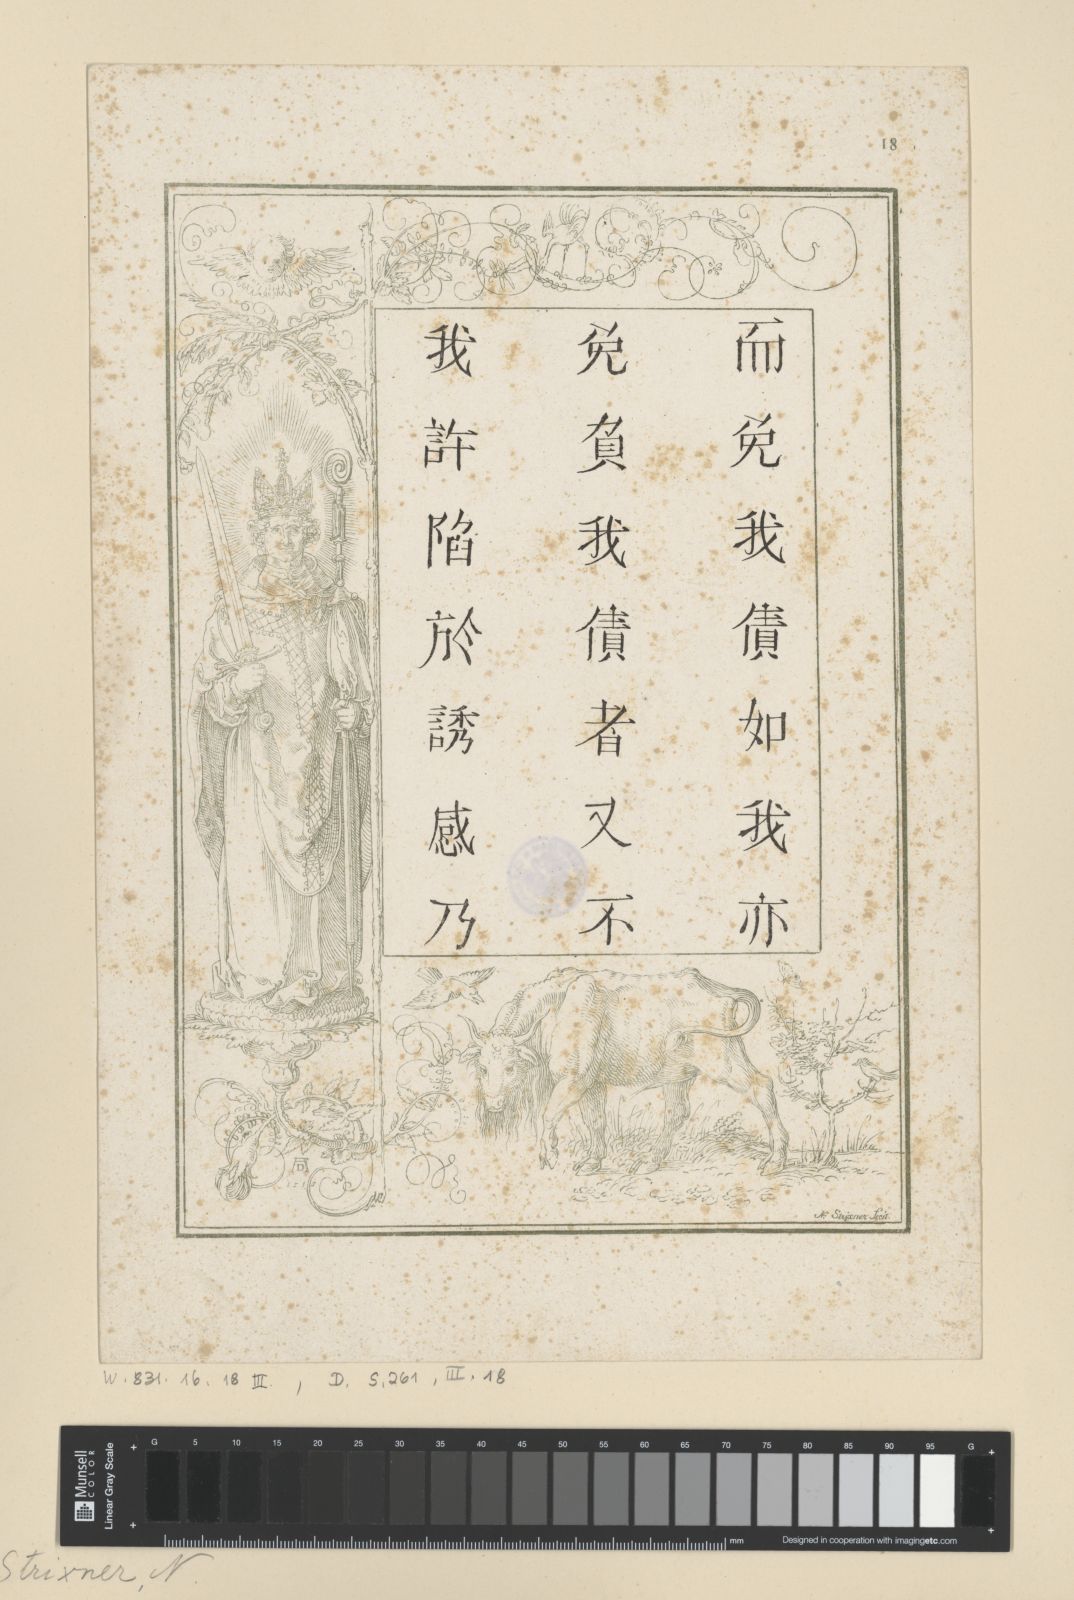 18
而免我債如我亦
免負我債者又不
我許陷於誘感乃
N. Strixner fecit.
W. 831. 16. 18 III. , D. S. 261, III. 18
Munsell
COLOR
Linear Gray Scale
G 5 10 15 20 25 30 35 40 45 50 55 60 65 70 75 80 85 90 95 G
mm
Designed in cooperation with imagingetc.com
Strixner, N.